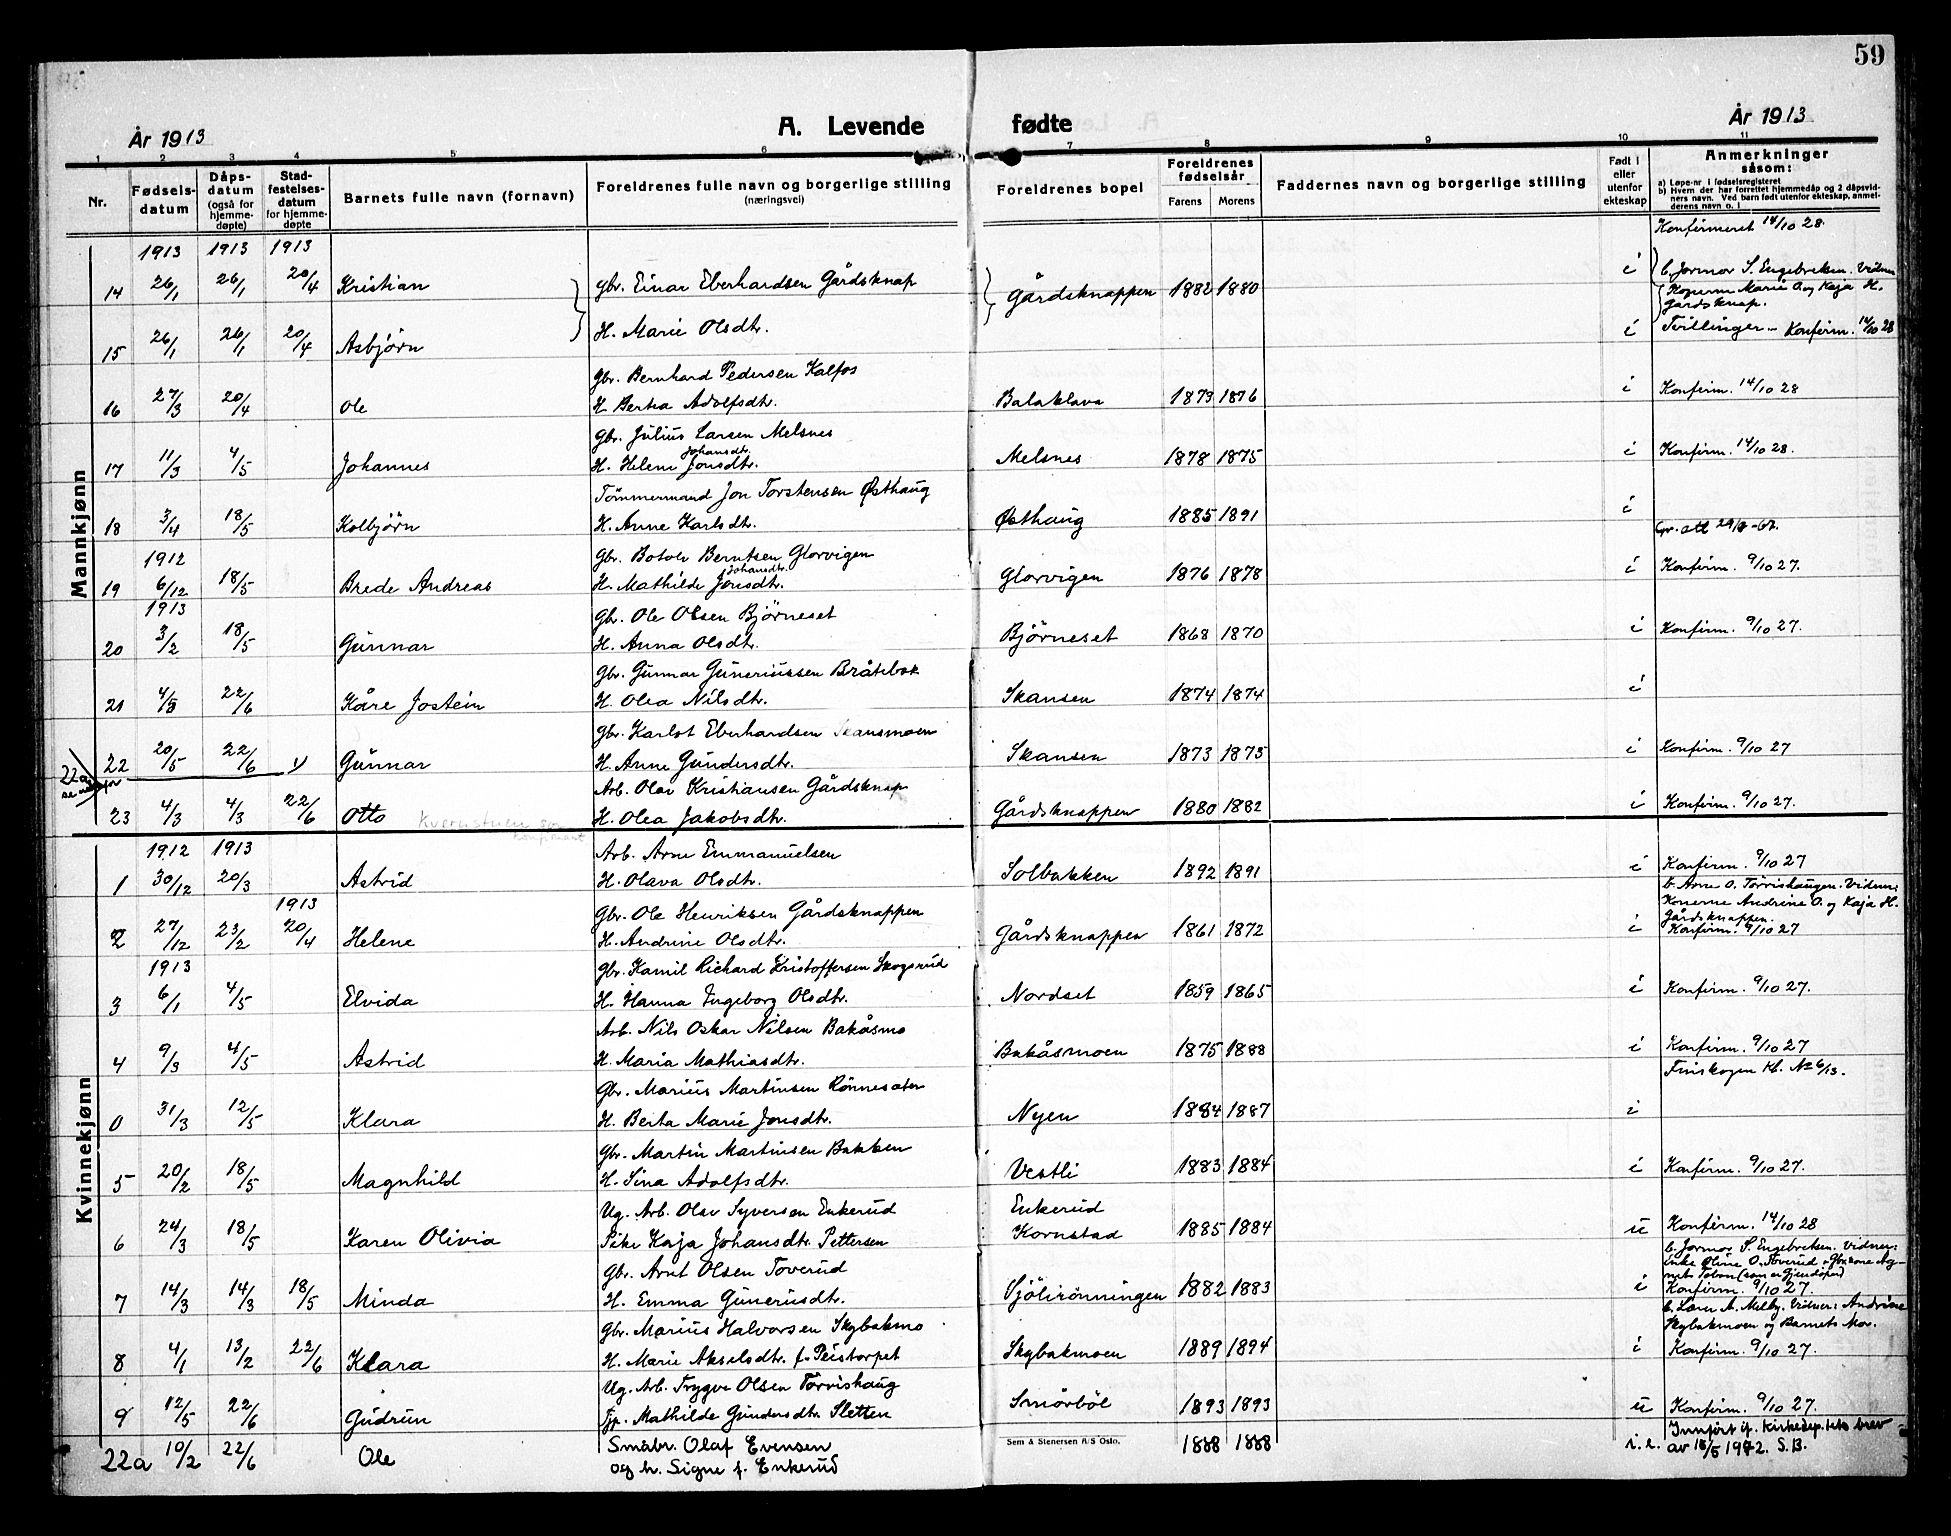 59
År 1913
A. Levende fødte
År 1913
1 2 3 4 5 6 7 8 9 10 11
Nr.
Fødsels-datum
Dåps-datum (også for hjemme-døpte)
Stad-festelses-datum for hjemme-døpte
Barnets fulle navn (fornavn)
Foreldrenes fulle navn og borgerlige stilling (næringsvei)
Foreldrenes bopel
Foreldrenes fødselsår
Farens Morens
Faddernes navn og borgerlige stilling
Født i eller utenfor ekteskap
Anmerkninger såsom:
a) Løpe-nr i fødselsregisteret
b) Hvem der har forrettet hjemmedåp og 2 dåpsvid-
ners navn. Ved barn født utenfor ekteskap, anmel-
derens navn o. l
Mannkjønn
1913 1913 1913 Konfirmeret 14/10 28.
14 26/1 26/1 20/4 Kristian Gbr. Einar Eberhardsen Gårdsknap Gårdsknappen 1882 1880 i b. Jormor S. Engebretsen. Vidner
Konerne Marie O. og Kaja H.
Gårdsknap.
15 26/1 26/1 20/4 Asbjørn H. Marie Olsdtr. i Tvillinger – Konfirm. 14/10 28
Gbr. Bernhard Pedersen Kalfos
16 27/3 20/4 Ole H. Berta Adolfsdtr. Balaklava 1873 1876 i Konfirm. 14/10 28
Gbr. Julius Larsen Melsnes
Johansdtr.
17 11/3 4/5 Johannes H. Helene Jonsdtr. Melsnes 1878 1875 i Konfirm. 14/10 28.
Tömmermand Jon Torstensen Østhaug
18 3/4 18/5 Kolbjörn H. Anne Karlsdtr. Østhaug 1885 1891 i
1912 Gbr. Botolv Berntsen Glorvigen
Johansdtr.
19 6/12 18/5 Brede Andreas H. Mathilde Jonsdtr. Glorvigen 1876 1878 i Konfirm. 9/10 27.
1913 Gbr. Ole Olsen Björneset
20 3/2 18/5 Gunnar H. Anna Olsdtr. Björneset 1868 1870 i Konfirm. 9/10 27.
Gbr. Gunnar Guneriussen Bråtebak
21 4/5 22/6 Kåre Jostein H. Olea Nilsdtr. Skansen 1874 1874 i
Gbr. Karlot Eberhardsen Skansmoen
22 20/5 22/6 Gunnar H. Anne Gundersdtr. Skansen 1873 1875 i Konfirm. 9/10 27
22a se nedenfor
Arb. Olav Kristiansen Gårdsknap
23 4/3 4/3 22/6 Otto H. Olea Jakobsdtr. Gårdsknappen 1880 1882 i Konfirm. 9/10 27.
Kvinnekjønn
1912 1913 Arb. Arne Emmanuelsen
1 30/12 20/3 Astrid H. Olava Olsdtr. Solbakken 1892 1891 i Konfirm. 9/10 27
b. Arne O. Torvishaugen. Vidner:
1913 Gbr. Ole Henriksen Gårdsknappen Konerne Andrine O. og Kaja H.
Gårdsknappen.
2 27/12 23/2 20/4 Helene H. Andrine Olsdtr. Gårdsknappen 1861 1872 i Konfirm. 9/10 27
1913 Gbr. Kamil Richard Kristoffersen Skogsrud
3 6/1 4/5 Elvida H. Hanna Ingeborg Olsdtr. Nordset 1859 1865 i Konfirm. 9/10 27.
Arb. Nils Oskar Nilsen Bakåsmo
4 9/3 4/5 Astrid H. Maria Mathiasdtr. Bakåsmoen 1875 1888 i Konfirm. 9/10 27
Gbr. Marius Martinsen Rönnesater Finskogen Kb. No 6/13.
0 31/3 12/5 Klara H. Berta Marie Jonsdtr. Nyen 1884 1887 i
Gbr. Martin Martinsen Bakken
5 20/2 18/5 Magnhild H. Sina Adolfsdtr. Vestli 1883 1884 i Konfirm. 9/10 27.
Ug. Arb. Olav Syversen Enkerud Enkerud
6 24/3 18/5 Karen Olivia Pike Kaja Johansdtr. Pettersen Kornstad 1885 1884 u Konfirm. 14/10 28
Gbr. Arnt Olsen Toverud b. Jormor S. Engebretsen. Vidner:
enke Oline O. Toverud
7 14/3 14/3 18/5 Minda H. Emma Gunerusdtr. Sjölirönningen 1882 1883 i Konfirm. 9/10 27.
Gbr. Marius Halvorsen Skybakmo b. Lærer A. Melby. Vidner: Andrine
Skybakmoen og Barnets Mor.
8 4/1 13/2 22/6 Klara H. Marie Akselsdtr. f. Peistorpet Skybakmoen 1889 1894 i Konfirm. 9/10 27.
Ug. Arb. Trygve Olsen Torvishaug
9 12/5 22/6 Gudrun Tjp. Mathilde Gundersdtr. Sletten Smörböl 1893 1893 u Konfirm. 9/10 27.
22a 10/2 22/6 Ole Småbr. Olaf Evensen
og h. Signe f. Enkerud 1888 1888 i. e. Innført if. Kirkedep.tets brev
av 15/5 1972. S.B.
Sem & Stenersen A/S Oslo.